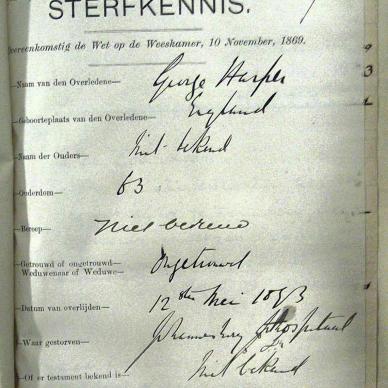 STERFKENNIS.
Overeenkomstig de Wet op de Weeskamer, 10 November, 1869.
—Naam van den Overledene— George Harper
—Geboorteplaats van den Overledene— England
—Naam der Ouders— Niet bekend
—Ouderdom— 63
—Beroep— Niet bekend
—Getrouwd of ongetrouwd—
Weduwenaar of Weduwe— Ongetrouwd
—Datum van overlijden— 12 den Mei 1893
—Waar gestorven— Hospitaal
—Of testament bekend is— Niet bekend